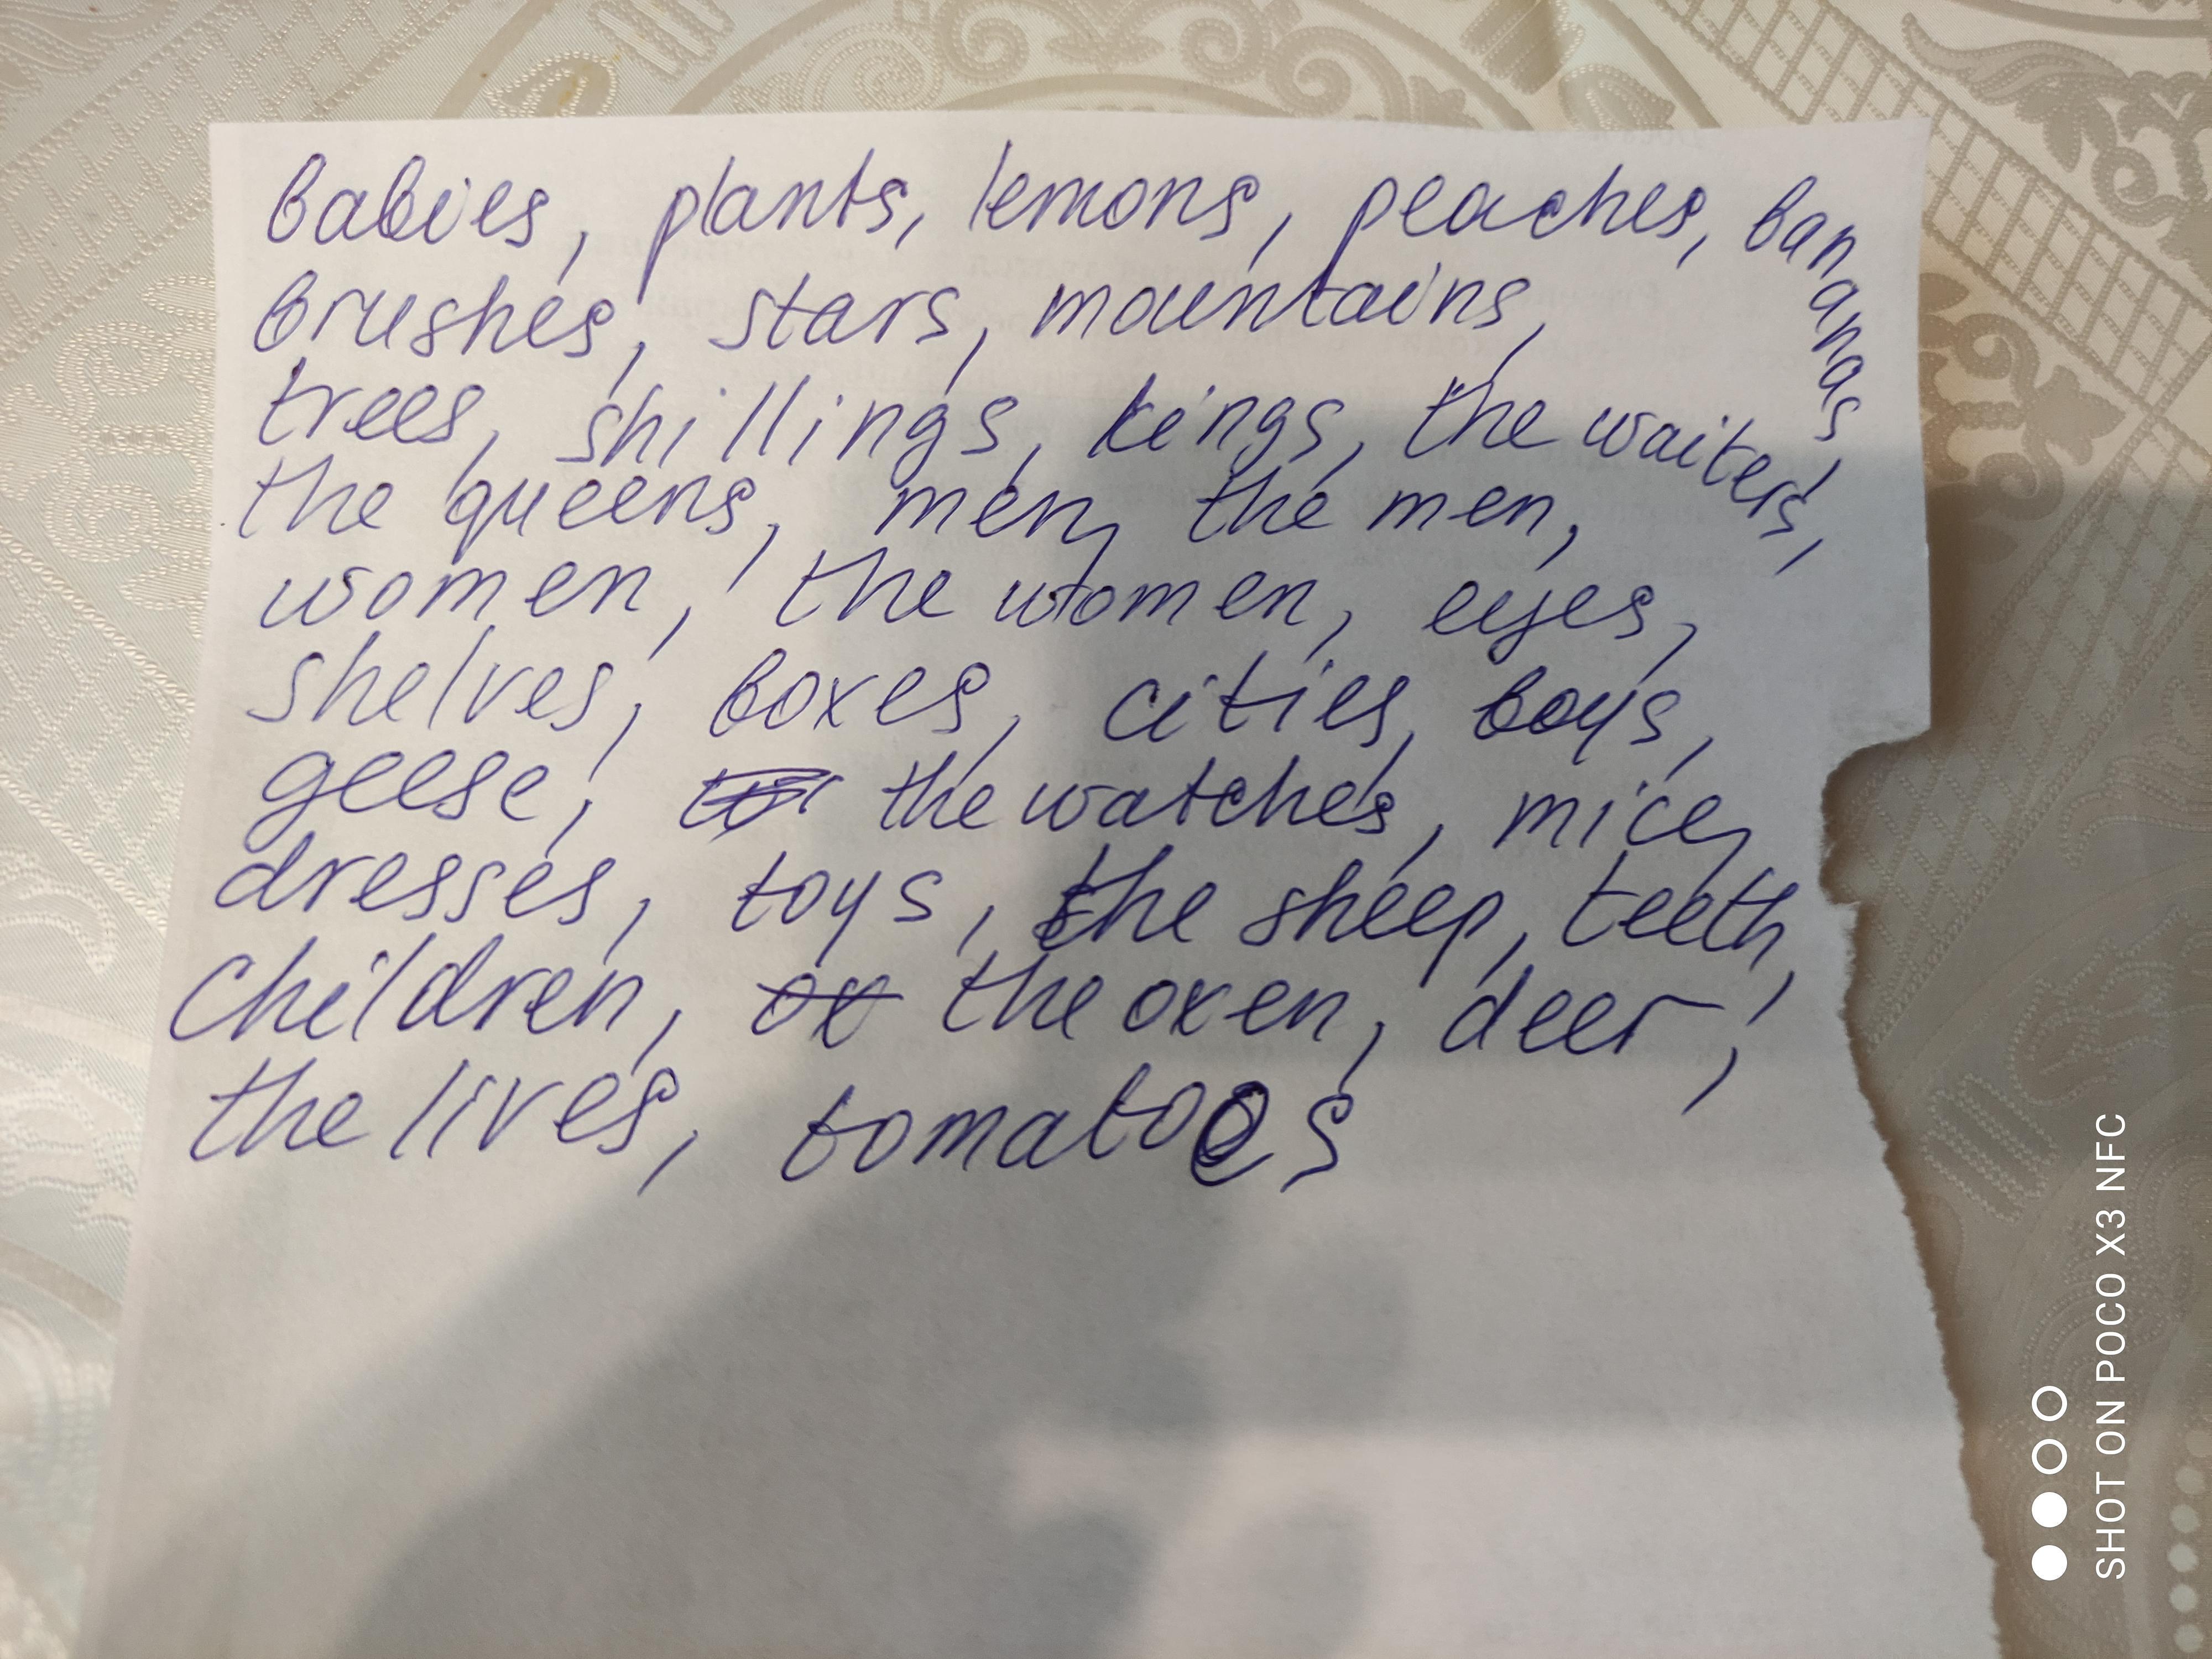 babies, plants, lemons, peaches, bananas,
brushes, stars, mountains,
trees, shillings, kings, the waiters,
the queens, men, the men,
women, the women, eyes,
shelves, boxes, cities, boys,
geese, the watches, mice,
dresses, toys, the sheep, teeth,
children, ox the oxen, deer,
the lives, tomatoes
SHOT ON POCO X3 NFC